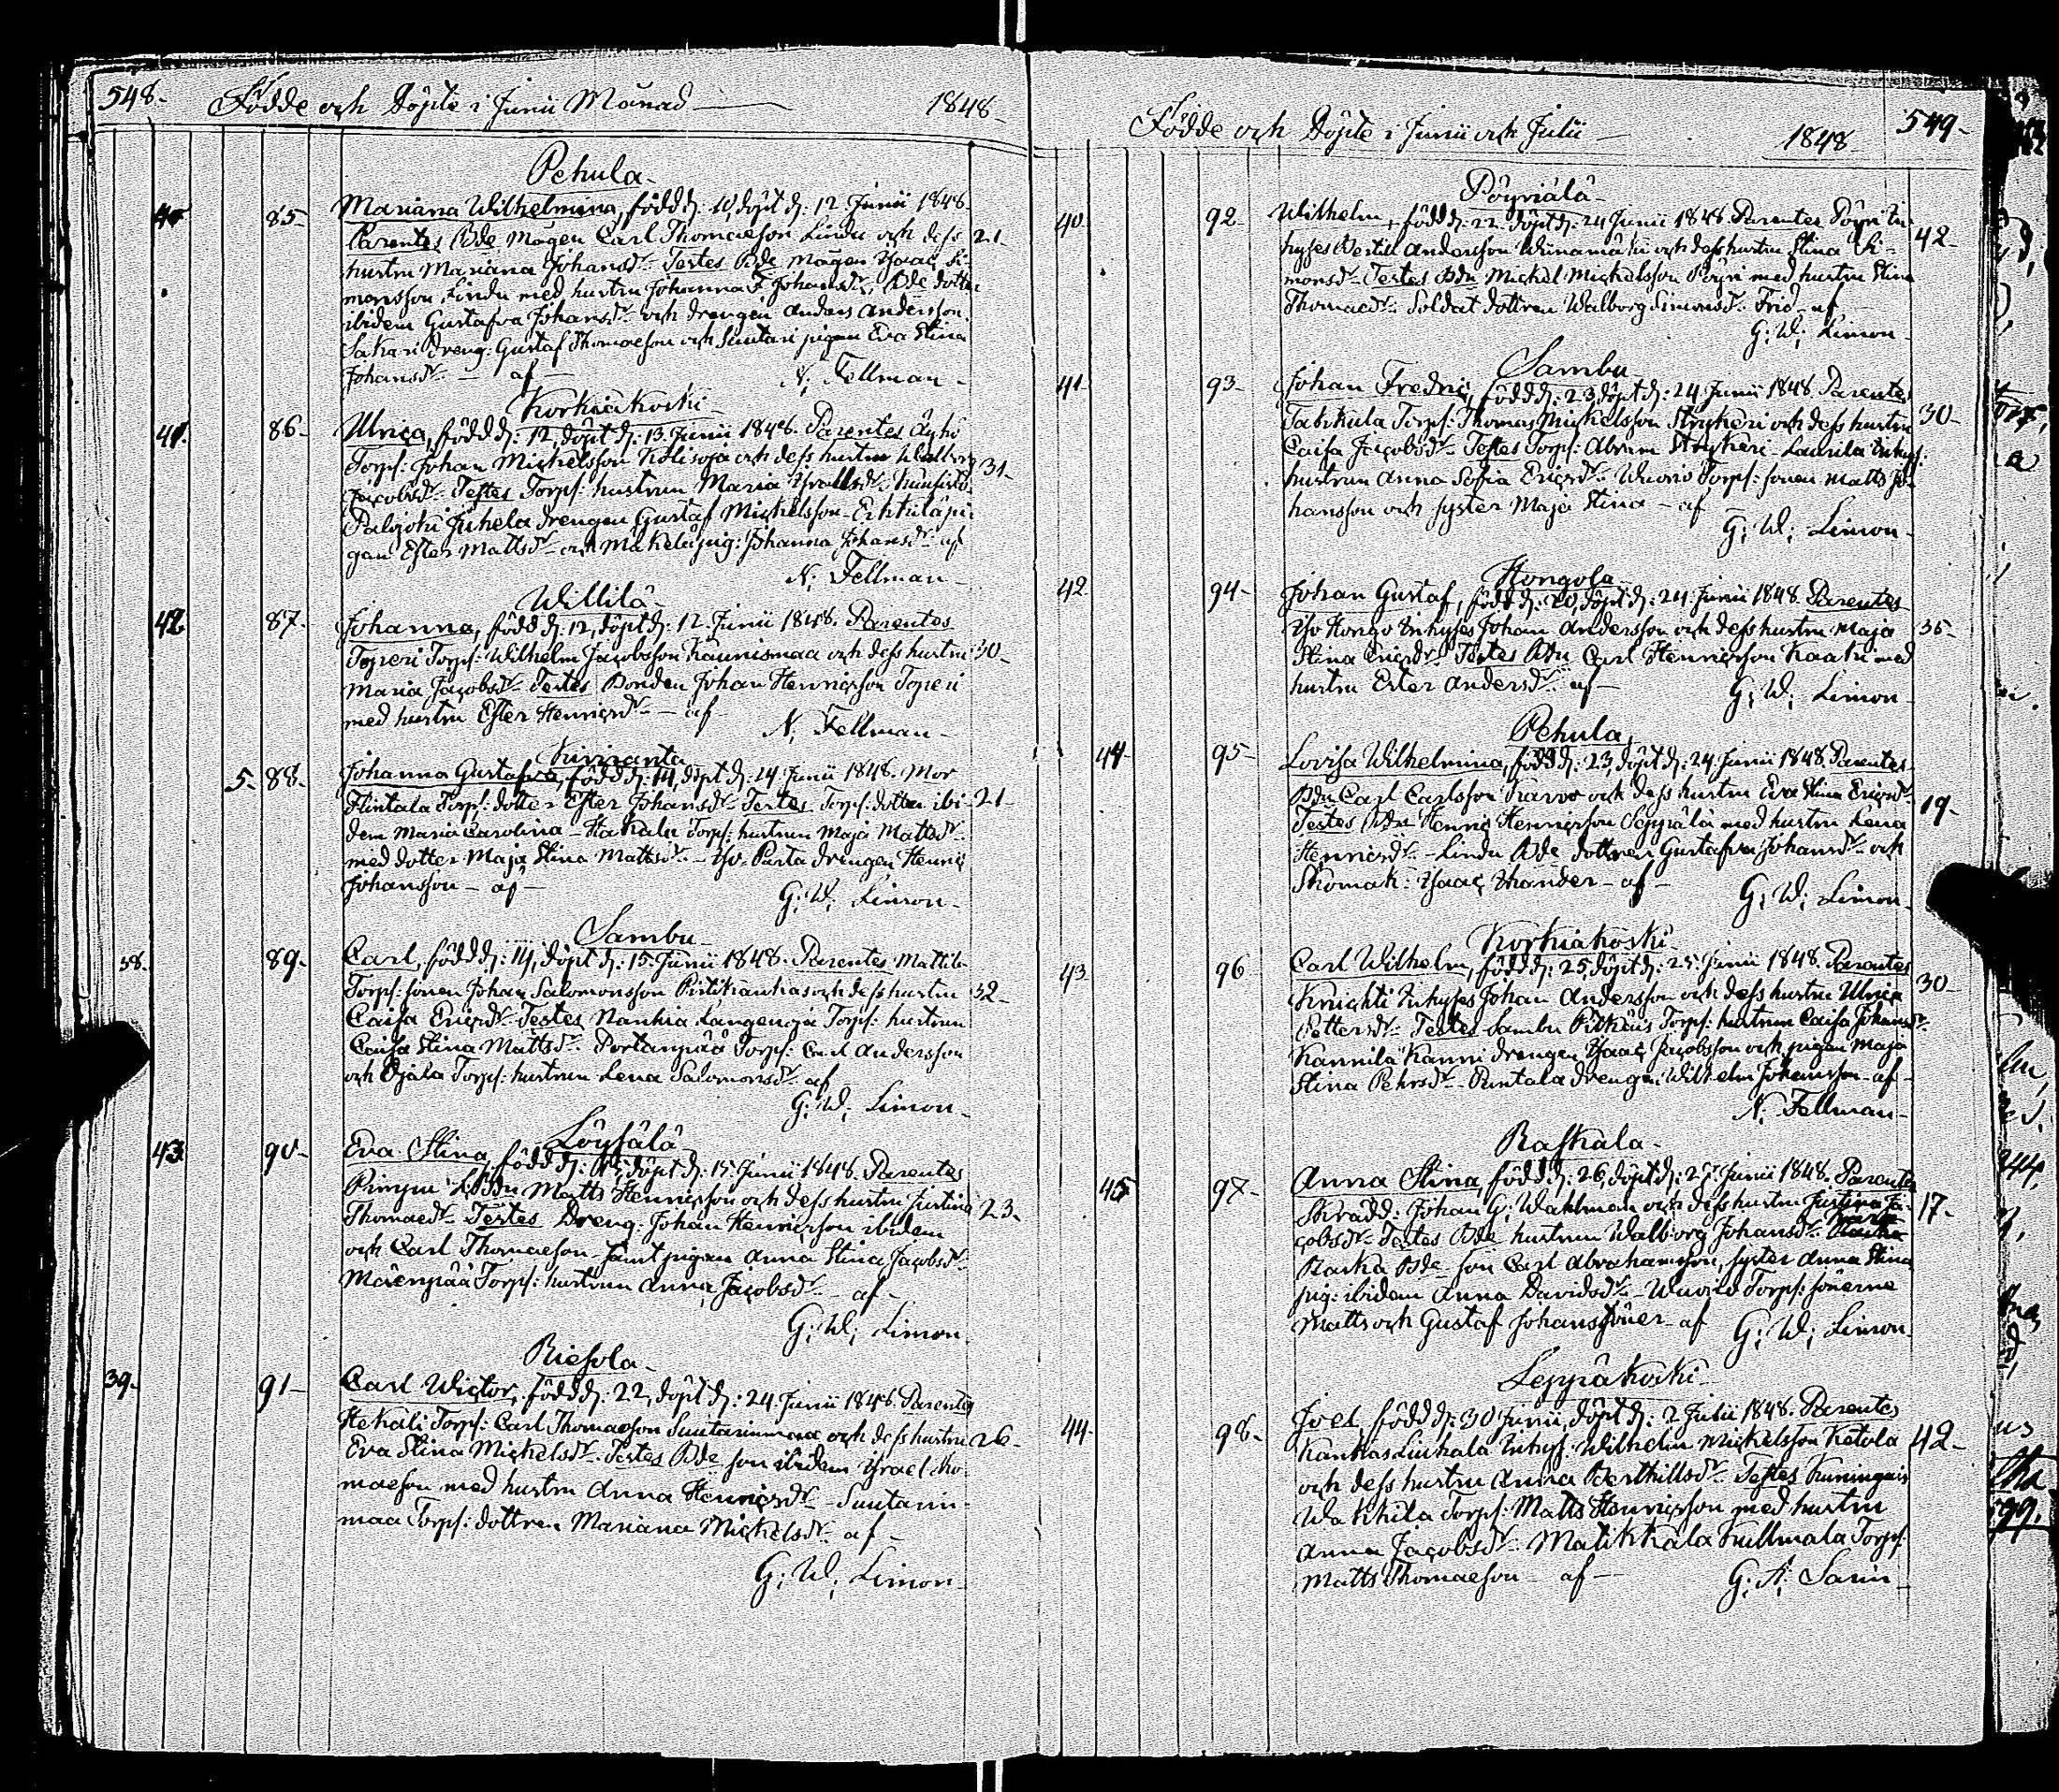 548. Födde och Döpte i Junii Månad 1848
Pehula
40 85 Mariana Wilhelmina, född d: 10, döpt d: 12 Junii 1848.
Parentes Bde mågen Carl Thomaeson Lindu och dess 21
hustru Mariana Johansdr. Testes Bde mågen Ysaac Si-
monsson Lindu med hustru Johanna Johansdr, Bde dottr
ibidem Gustafva Johansdr och drengen Anders Andersson
Sakari dreng: Gustaf Thomaeson och Suutari pigan Eva Stina
Johansdr af N: Fellman
Korkiakoski
41. 86 Ulrica, född d: 12, döpt d: 13 Junii 1848. Parentes Äyhö
Torp: Johan Mickelsson Kolisoja och dess hustru Walborg 31
Jacobsdr. Testes Torp: hustrun Maria Israelsdr
Palojoki Juhela drengen Gustaf Mickelsson Erkkilä pi-
gan Ester Mattsdr och Mäkelä pig: Johanna Johansdr af
N: Fellman
Willilä
42 87. Johanna, född d: 12, döpt d: 12 Junii 1848. Parentes
Toperi Torp: Wilhelm Jacobsson Kaunismaa och dess hustru 30
Maria Jacobsdr Testes Bonden Johan Henricsson Toperi
med hustru Ester Henricsdr af N: Fellman
Kirriranta
5 88. Johanna Gustafva, född d: 14, döpt d: 14 Junii 1848. Mor
Hintala Torp: dotter Ester Johansdr Testes Torp: dotter ibi- 21
dem Maria Carolina Hakala Torp: hustrun Maja Mattsdr
med dotter Maja Stina Mattsdr Yso Parta drengen Henric
Johansson af G: W: Limon
Sambu
38. 89. Carl, född d: 14, döpt d: 15 Junii 1848. Parentes Mattila
Torp: sonen Johan Salomonsson Pirtikankas och dess hustru 32
Caisa Ericsdr Testes Nanhia Langenoja Torp: hustrun
Caisa Stina Mattsdr. Portanpää Torp: Carl Andersson
och Ojala Torp: hustrun Lena Salomonsdr af
G: W: Limon
Löysälä
43 90 Eva Stina, född d: 15, döpt d: 15 Junii 1848. Parentes
Matts Henricsson och dess hustru Justina 23
Thomaedr Testes Dreng: Johan Henricsson ibidem
och Carl Thomaeson samt pigan Anna Stina Jacobsdr
Mäenpää Torp: hustrun Anna Jacobsdr af
G: W: Limon
Riesola
39. 91 Carl Wictor, född d: 22, döpt d: 24 Junii 1848. Parentes
Hekali Torp: Carl Thomaeson Suutarinmaa och dess hustru 26
Eva Stina Mickelsdr. Testes Bde son ibidem Israel Tho-
maeson med hustru Anna Henricsdr Suutarin-
maa Torp: dottren Mariana Mickelsdr af
G: W: Limon
Födde och Döpte i Junii och Julii 1848 549
Pöyriälä
40 92 Wilhelm, född d: 22, döpt d: 24 Junii 1848. Parentes Pöyri In-
hyses Bertill Andersson och dess hustru Stina Si- 42
monsdr Testes Bdn Mickel Mickelsson Pöyri med hustru Stina
Thomaedr Soldat dottren Walborg Simonsdr Frid af
G: W: Limon
Sambu
41 93 Johan Fredric, född d: 23, döpt d: 24 Junii 1848. Parentes
Takkula Torp: Thomas Mickelsson Strykeri och dess hustru 30
Caisa Jacobsdr Testes Torp: Abram Strykeri Laurila Inhys:
hustrun Anna Sofia Ericsdr Wuorio Torp: sonen Matts Jo-
hansson och syster Maja Stina af
G: W: Limon
Hongola
42 94 Johan Gustaf, född d: 20, döpt d: 24 Junii 1848. Parentes
Yso Hongo Inhyses Johan Andersson och dess hustru Maja 35
Stina Ericsdr Testes Bdn Carl Henricsson Kaaki med
hustru Ester Andersdr af G: W: Limon
Pehula
44 95 Lovisa Wilhelmina, född d: 23, döpt d: 24 Junii 1848. Parentes
Bdn Carl Carlsson och dess hustru Eva Stina Ericsdr 19
Testes Bdn Henric Henricsson Seppälä med hustru Lena
Henricsdr Lindu Bde dottren Gustafva Johansdr och
Skomak: Ysaac Thander af G: W: Limon
Korkiakoski
43 96 Carl Wilhelm, född d: 25, döpt d: 25 Junii 1848. Parentes
Knichti Inhyses Johan Andersson och dess hustru Ulrica 30
Pettersdr Testes Sambu Torp: hustrun Caisa Johansdr
Kannila Kanni drengen Ysaac Jacobsson och pigan Maja
Stina Pehrsdr Puntala drengen Wilhelm Johansson af
N: Fellman
Raskala
45 97 Anna Stina, född d: 26, döpt d: 27 Junii 1848. Parentes
Skrädd: Johan G: Wahlman och dess hustru Justina Ja- 17
cobsdr Testes Bde hustrun Walborg Johansdr
Raska Bde son Carl Abrahamsson, syster Anna Stina
pig: ibidem Anna Davidsdr Wuorio Torp: sönerne
Matts och Gustaf Johanssöner af G: W: Limon
Leppäkoski
44 98 Joel, född d: 30 Junii, döpt d: 2 Julii 1848. Parentes
Kankas Liuhala Inhys: Wilhelm Mickelsson Ketola 42
och dess hustru Anna Berthillsdr Testes Kuningais
Wakkila Torp: Matts Henricsson med hustru
Anna Jacobsdr Matikkala Torp:
Matts Thomaeson af G: A: Sarin